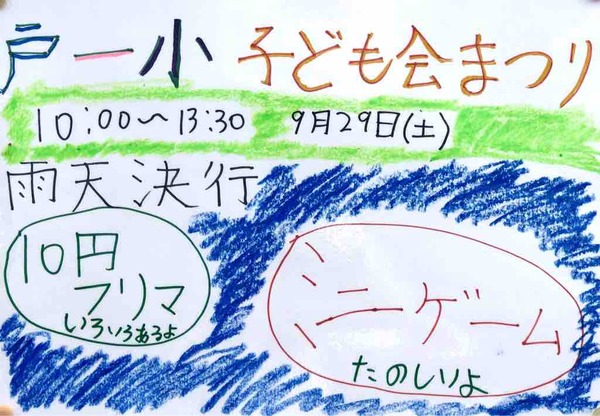 戸一小 子ども会まつり
10:00〜13:30 9月29日(土)
雨天決行
10円
フリマ
いろいろあるよ
ミニーゲーム
たのしいよ